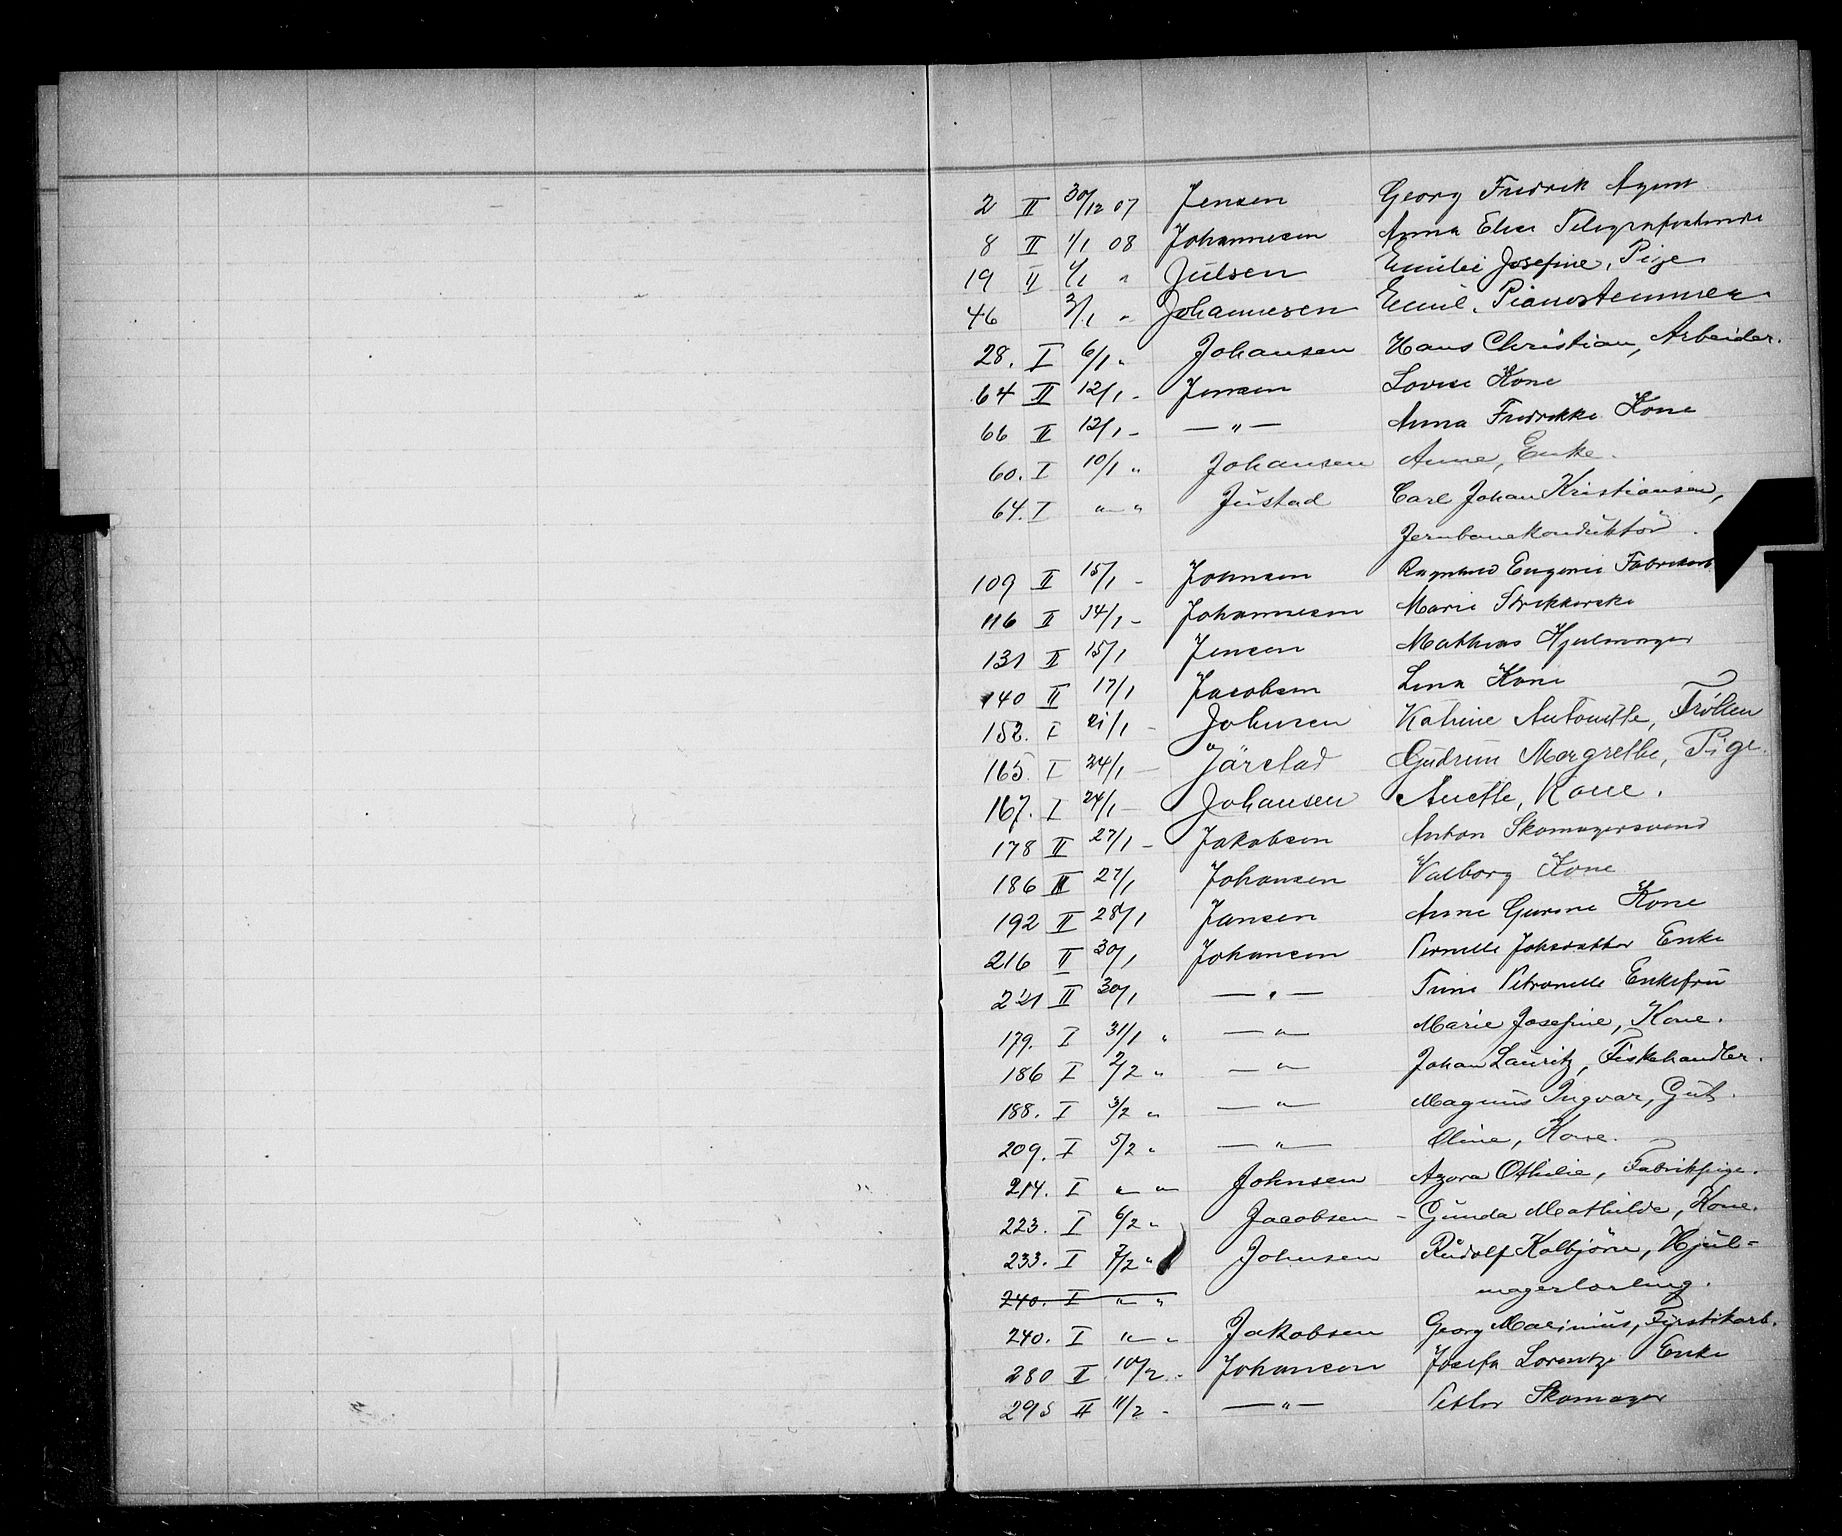 2 II 30/12 07 Jensen Georg Fredrik Agent
8 II 1/1 08 Johannesen Anna Elise
19 II 4/1 " Julsen Emilie Josefine, Pige
46 3/1 " Johannesen Emil, Pianostemmer
28. I 6/1 " Johansen Hans Christian, Arbeider.
64 II 12/1 - Jensen Lovise Kone
66 II 12/1 - — " — Anna Fredrikke Kone
60. I 10/1 " Johansen Anne, Enke.
64. I " — " Justad Carl Johan Kristiansen,
Jernbanekonduktör.
109 II 15/1 - Johnsen Ragnhild Eugenie
116 II 14/1 - Johannesen Marie Strikkerske
131 II 15/1 Jensen Mathias Hjulmager
140 II 17/1 Jacobsen Lina Kone
152. I 21/1 - Johnsen Katrine Antonette, Fröken
165. I 24/1 — Jårstad Gudrun Margrethe, Pige.
167. I 24/1 — Johansen Anette, Kone.
178 II 27/1 - Jakobsen Anton Skomagersvend
186 II 27/1 Johansen Valborg Kone
192 II 28/1 Jansen Anne Gurine Kone
216 II 30/1 Johansen Pernille Johsdatter Enke
221 II 30/1 — " — Trine Petronelle Enkefru
179. I 31/1 " — " — Marie Josefine, Kone.
186 I 2/2 " — " — Johan Lauritz, Fiskehandler.
188. I 3/2 " — " — Magnus Ingvar, Gut.
209. I 5/2 " — " — Oline, Kone.
214. I " — " Johnsen Azora Othilie, Fabrikpige.
223. I 6/2 " Jacobsen - Gunda Mathilde, Kone.
233. I 7/2 " Johnsen Rudolf Kolbjörn, Hjul-
magerlærling.
240. I " — "
240. I " — " Jakobsen Georg Marinius, Fyrstikarb.
280 II 10/2 - Johansen Josefa Lorentze Enke
295 II 11/2 - — " — Petter Skomager